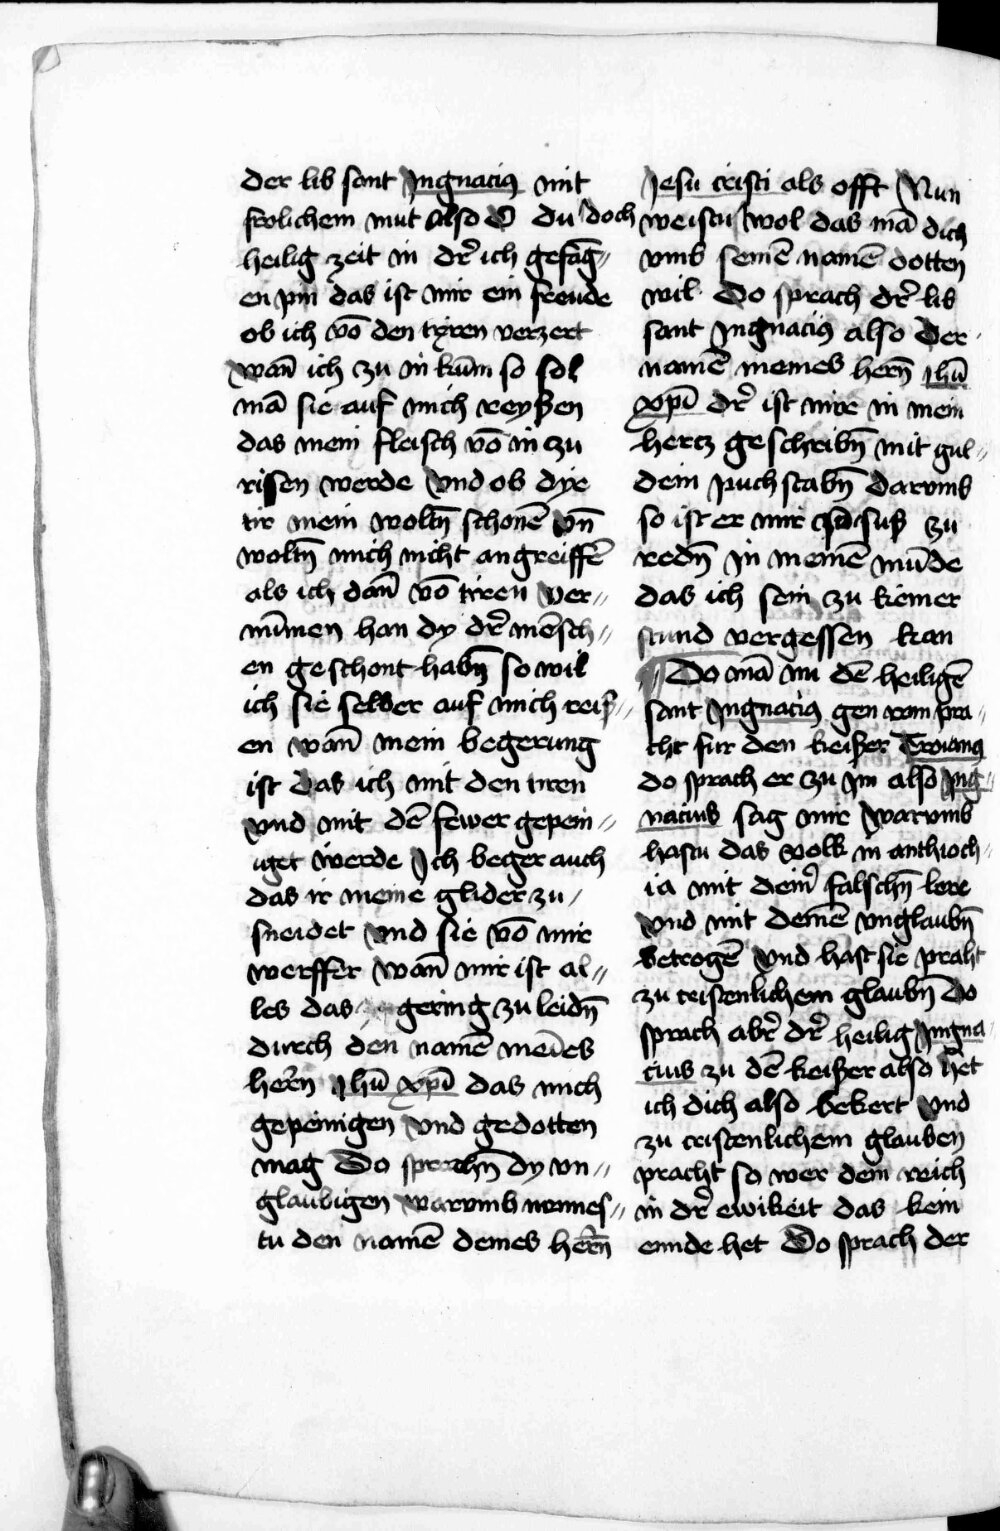 der lib sant Jngnacius mit
frolichem mut also O du doch
heilig zeit in dr̄ ich gefāg〃
en pin das ist mir ein freude
ob ich vō den tyren verzert
wañ ich zu in kūm so sol
mā sie auf mich reyßen
das mein fleisch vō in zu
rissen werde vnd ob dye
tir mein woltn̄ schonē vn̄
woltn̄ mich nicht angreiffē
als ich dañ vō tiren ver〃
nūmen han dy dr̄ mēsch〃
en geschont habn̄ so wil
ich sie selber auf mich reiß〃
en wañ mein begerung
ist das ich mit den tiren
vnd mit dē fewer gepein〃
iget werde Jch beger auch
das ir meine glider zu
sneidet vnd sie vō mir
werffet wañ mir ist al〃
les das gering zu leidn̄
durch den namē meīes
hern̄ Jhū xp̄i das mich
gepeinigen vnd gedotten
mag Do sprachn̄ dy vn〃
glaubigen warvmb nennes〃
tu den namē deines hern̄
Jesu cristi als offt Nun
weistu wol das mā dich
vmb seinē namē dotten
wil Do sprach dr̄ lib
sant Jngnacius also Der
namē meines hern̄ Jhū
xp̄i dr̄ ist mir in mein
hertz geschribn̄ mit gul〃
dein puchstabn̄ darvmb
so ist er mir so suß zu
redn̄ in meinē mūde
das ich sein zu keiner
stund vergessen kan
Do mā nu dē heiligē
sant Jngnacius gen rom pra
cht fur den keißer Troianus
do sprach er zu im also Jng〃
nacius sag mir warvmb
hastu das volk in anthioch
ia mit deinr̄ falschn̄ lere
vnd mit deinē vnglaubn̄
betrogē vnd hast sie praht
zu cristenlichem glaubn̄ Do
sprach abr̄ dr̄ heilig Jngna
cius zu dē keißer also het
ich dich also bekert vnd
zu cristenlichem glauben
pracht so wer dein reich
in dr̄ ewikeit das kein
ennde het Do sprach der